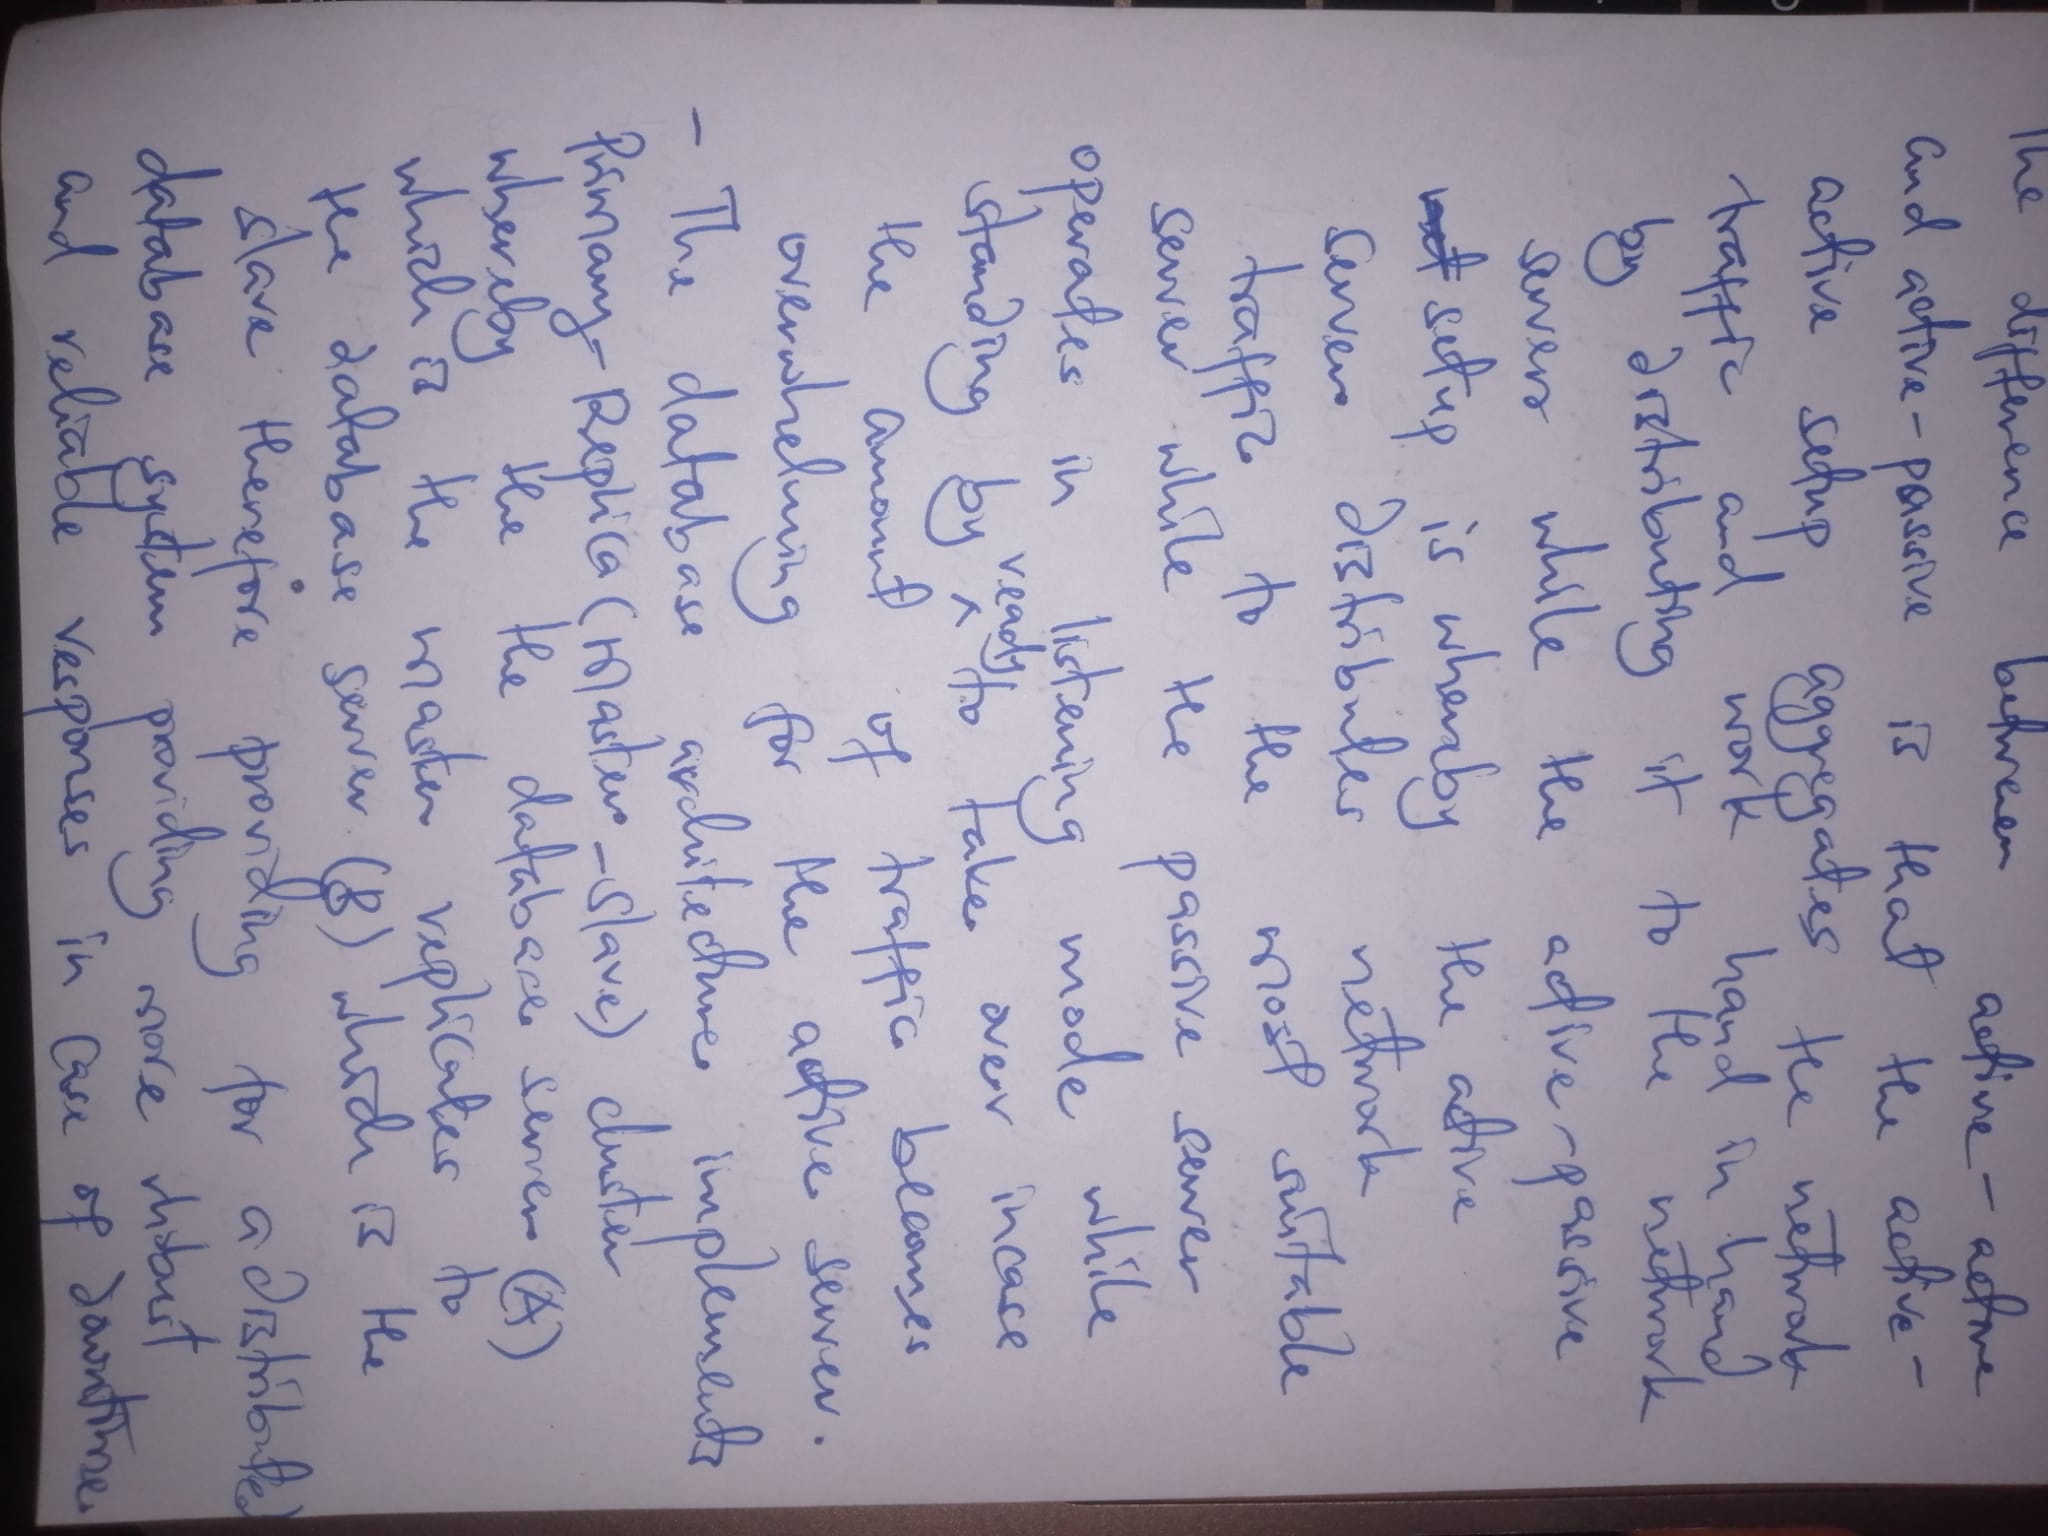 The difference between active-active
and active-passive is that the active-
active setup aggregates the network
traffic and work hand in hand
by distributing it to the network
server while the active-passive
setup is whereby the active
server distributes network
traffic to the most suitable
server while the passive server
operates in listening mode while
standing by ready to take over incase
the amount of traffic becomes
overwhelming for the active server.
- The database architecture implements
Primary-Replica (Master-Slave) cluster
whereby the the database server (A)
which is the master replicates to
the database server (B) which is the
slave therefore providing for a distributed
database system providing more robust
and reliable responses in case of downtime